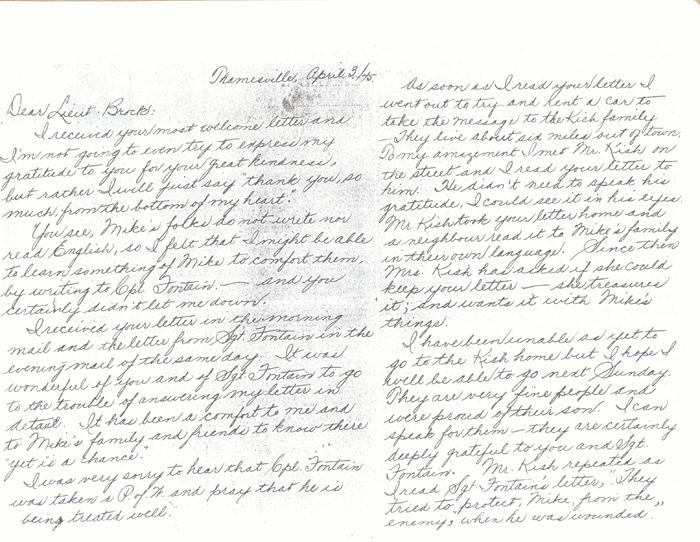 Thamesville, April 3/45
Dear Lieut. Brock:
I received your most welcome letter and
I'm not going to even try to express my
gratitude to you for your great kindness,
but rather I will just say "thank you, so
much, from the bottom of my heart."
You see, Mike's folks do not write nor
read English, so I felt that I might be able
to learn something of Mike to comfort them,
by writing to Cpl. Fontain. — and you
certainly didn't let me down.
I received your letter in the morning
mail and the letter from Sgt. Fontain in the
evening mail of the same day. It was
wonderful of you and of Sgt Fontain to go
to the trouble of answering my letter in
detail. It has been a comfort to me and
to Mike's family and friends to know there
yet is a chance.
I was very sorry to hear that Cpl. Fontain
was taken a P. of W. and pray that he is
being treated well.
As soon as I read your letter I
went out to try and rent a car to
take the message to the Kish family
— They live about six miles out of town.
To my amazement I met Mr. Kish on
the street and I read your letter to
him. He didn't need to speak his
gratitude, I could see it in his eyes.
Mr Kish took your letter home and
a neighbour read it to Mike's family
in their own language. Since then
Mrs. Kish has asked if she could
keep your letter — she treasures
it; and wants it with Mike's
things.
I have been unable as yet to
go to the Kish home but I hope I
will be able to go next Sunday.
They are very fine people and
were proud of their son. I can
speak for them — they are certainly
deeply grateful to you and Sgt.
Fontain. Mr. Kish repeated as
I read Sgt Fontain's letter, "They
tried to protect, Mike, from the
enemy, when he was wounded."